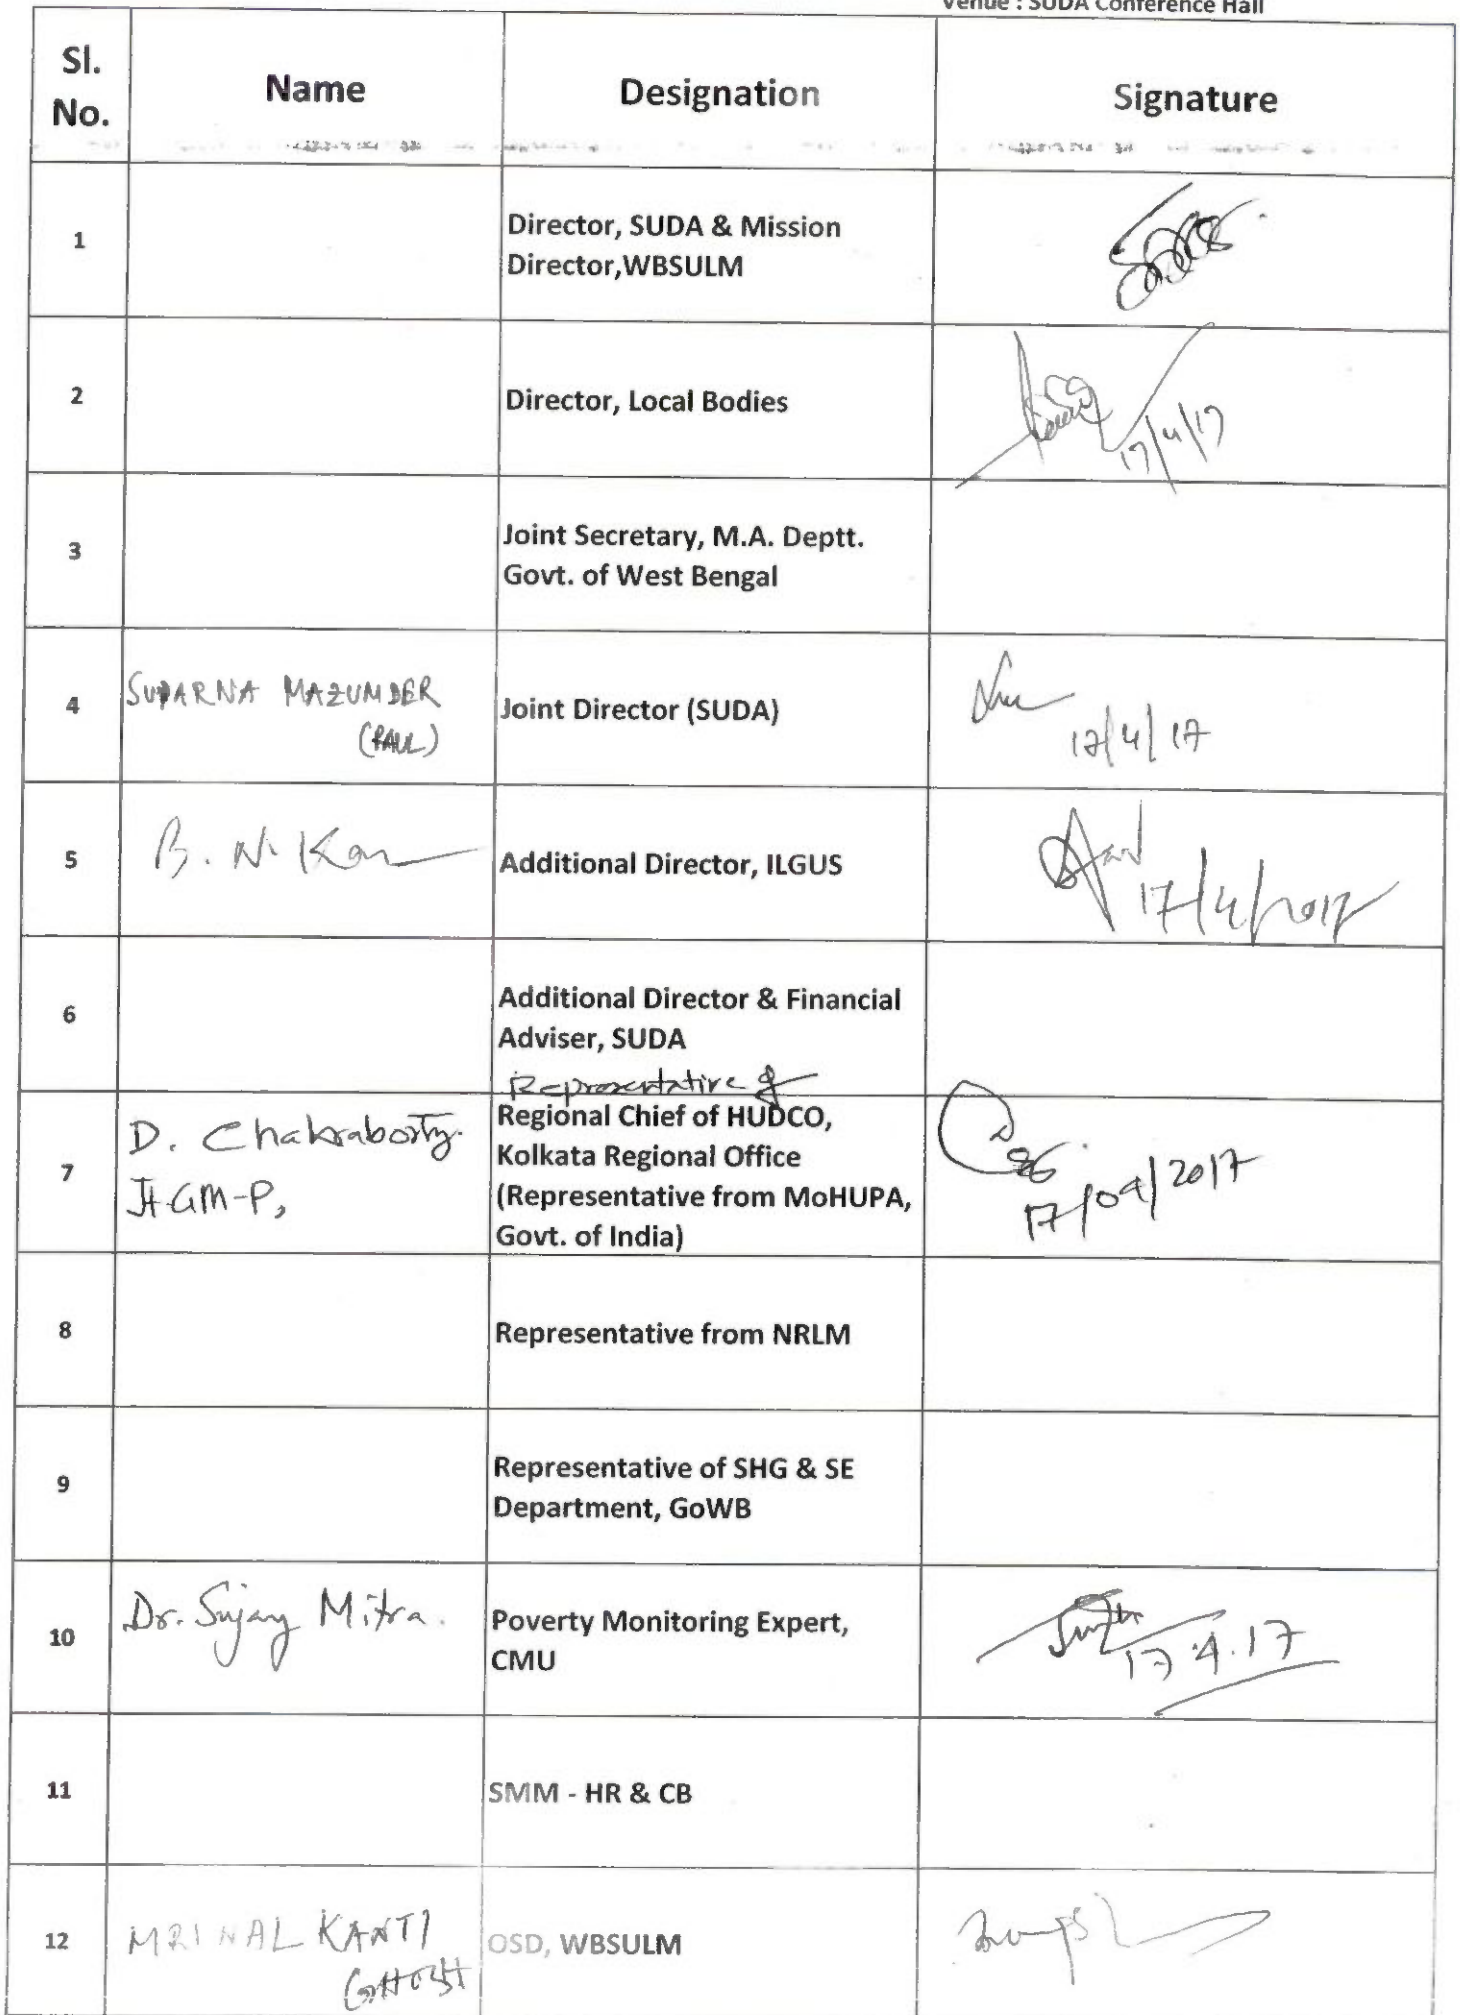 Venue : SUDA Conference Hall
Sl. No.
Name
Designation
Signature
1
Director, SUDA & Mission
Director,WBSULM
2
Director, Local Bodies
17/4/17
3
Joint Secretary, M.A. Deptt.
Govt. of West Bengal
4
SUPARNA MAZUMDER
(PAUL)
Joint Director (SUDA)
17/4/17
5
B. N. Kar
Additional Director, ILGUS
17/4/2017
6
Additional Director & Financial
Adviser, SUDA
7
D. Chakraborty.
Jt GM-P,
Representative of
Regional Chief of HUDCO,
Kolkata Regional Office
(Representative from MoHUPA,
Govt. of India)
17/04/2017
8
Representative from NRLM
9
Representative of SHG & SE
Department, GoWB
10
Dr. Sujay Mitra.
Poverty Monitoring Expert,
CMU
17.4.17
11
SMM - HR & CB
12
MRINAL KANTI
GHOSH
OSD, WBSULM